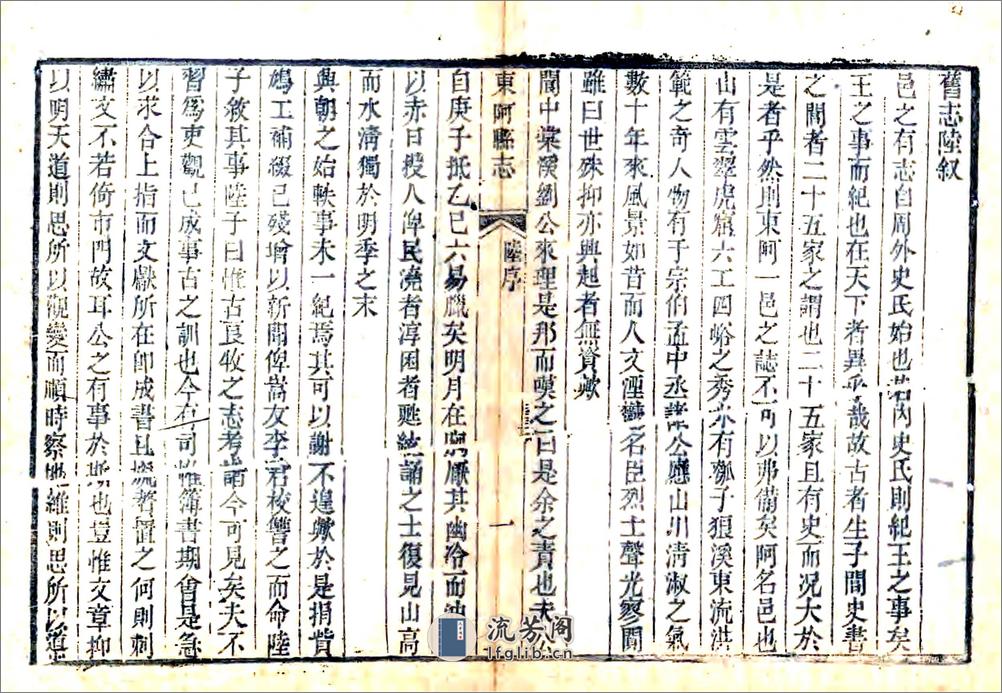 舊志陸叙
邑之有志自周外史氏始也若內史氏則紀王之事矣
王之事而紀也在天下者異乎哉故古者生子閭史書
之閭者二十五家之謂也二十五家且有史而況大於
是者乎然則東阿一邑之誌不可以弗備矣阿名邑也
山有雲翠虎窟六工四峪之秀水有瓠子狼溪東流洪
範之奇人物有于宗伯孟中丞諸公應山川清淑之氣
數十年來風景如昔而人文湮鬱名臣烈士聲光寥聞
雖曰世殊抑亦興起者無資歟
閩中棠溪劉公來理是邦而嘆之曰是余之責也夫公
東阿縣志
陸序
一
自庚子抵乙巳六易臘矣明月在胸厭其幽冷而
以赤日授人俾民澆者淳困者甦絃誦之士復見山高
而水清獨於明季之末
興朝之始軼事未一紀焉其可以謝不遑歟於是捐貲
鳩工補綴已殘增以新聞俾嵩友李君校讐之而命陸
子敘其事陸子曰惟古良牧之志考誦今可見矣夫不
習爲吏觀已成事古之訓也今有司惟簿書期會是急
以求合上指而文獻所在即成書且㒹寘之何則刺
繡文不若倚市門故耳公之有事於斯也豈惟文章抑
以明天道則思所以觀變而順時察地維則思所以導
流芳閣
lfglib.cn